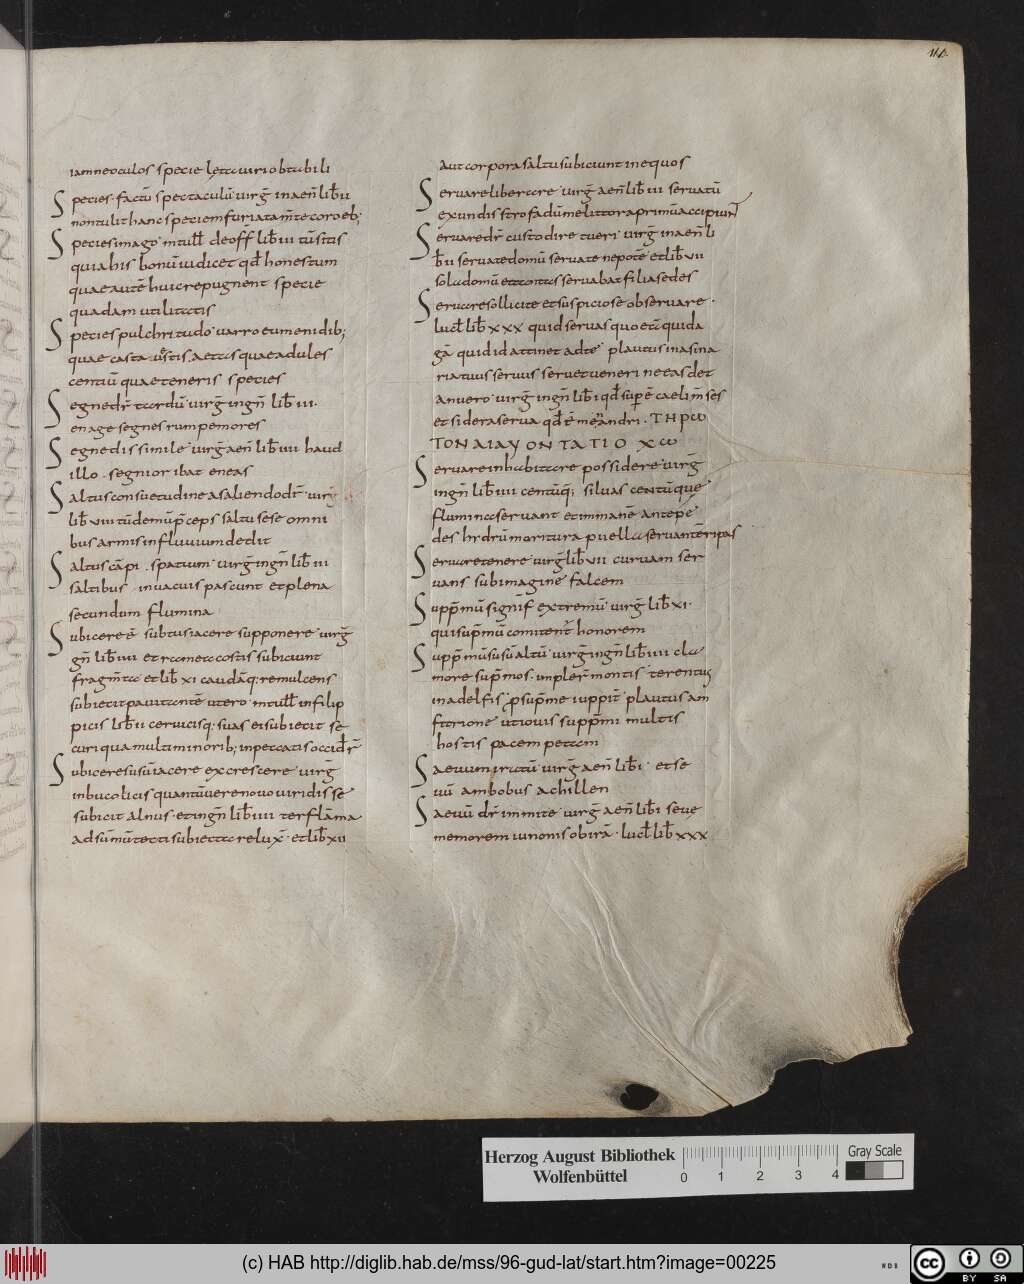 110.
iamne oculos specie lęta uiri obtubili
Species · factū spectaculū · uirḡ in aeñ lib̄ ii
non tulit hanc speciem furiata m̄te coroeb;
Species imago · m tull̄ de off lib̄ iii tū sitis
quia his bonū iudicet qđ honestum
quae autē huic repugnent specie
quadam utilitatis
Species pulchritudo · uarro eumenidib;
quae casta uestis · aetas quae adules
centiū quae teneris species
Segne dr̄ tardū · uirḡ in gēn lib̄ iii ·
en age segnes rumpe mores
Segne dissimile · uirḡ aeñ lib̄ iiii haud
illo · segnior ibat eneas
Saltus consuetudine a saliendo dr̄ · uirḡ
lib̄ viiii tū demū p̄ceps saltu sese omni
bus armis in fluuium dedit
Saltus cāpi · spatium · uirḡ in gēn lib̄ iii
saltibus in uacuis pascunt et plena
secundum flumina
Subicere ē subtus iacere supponere · uirḡ
gēn lib̄ iiii et ramea costis subiciunt
fragm̄ta · et lib̄ xi caudāq; remulcens
subiecit pauitantē utero · m tull̄ in filip
picis lib̄ ii ceruicisq; suas ei subiecit se
curi qua multi minorib; in peccatis occider̄
Subicere susū iacere excrescere · uirḡ
in bucolicis quantū uere nouo uiridis se
subicit alnus · et in gēn lib̄ iiii ter flāma
ad sūmū tecti subiecta relux̄ · et lib̄ xii
aut corpora saltu subiciunt in equos
Seruare liberare · uirḡ aeñ lib̄ iii seruatū
ex undis strofadū me littora primū accipiunt
Seruare dr̄ custodire tueri · uirḡ in aeñ li
b̄ ii seruate domū seruate nepotē · et lib̄ vii
sola domū et tantas seruabat filia sedes
Seruare sollicite et suspiciose obseruare ·
lucil̄ lib̄ xxx quid seruas quo eā quid a
gā · quid id attinet ad te · plautus in asina
ria tuus seruus seruet ueneri ne eas det
an uero · uirḡ in gēn lib̄ i qđ sup̄ ē caeli m̄ses
et sidera serua qđ ē menandri · ΤΗΡω
ΤΟΝ ΑΙΑΥ ΟΝ ΤΑΤΙΟ Χω
Seruare inhabitare possidere · uirḡ
in gēn lib̄ iiii centūq; siluas centūque
flumina seruant et immanē ante pe
des hr̄drū moritura puella seruantē ripas
Seruare tenere · uirḡ lib̄ vii curuam ser
uans sub imagine falcem
Supp̄mū signif̄ extremū · uirḡ lib̄ xi ·
qui sup̄mū comitent̄ honorem
Supp̄mū susū altū · uirḡ in gēn lib̄ iiii cla
more sup̄mos · impler̄ montis · terentius
in adelfis p̄ sup̄me iuppit̄ · plautus am
fitrione ut iouis supp̄mi multis
hostis pacem petam
Saeuum iratū · uirḡ aeñ lib̄ i · et se
uū ambobus achillen
Saeuū dr̄ immite · uirḡ aeñ lib̄ i seue
memorem iunonis ob irā · lucil̄ lib̄ xxx
Herzog August Bibliothek
Wolfenbüttel
0 1 2 3 4
Gray Scale
(c) HAB http://diglib.hab.de/mss/96-gud-lat/start.htm?image=00225
WDB
cc BY SA